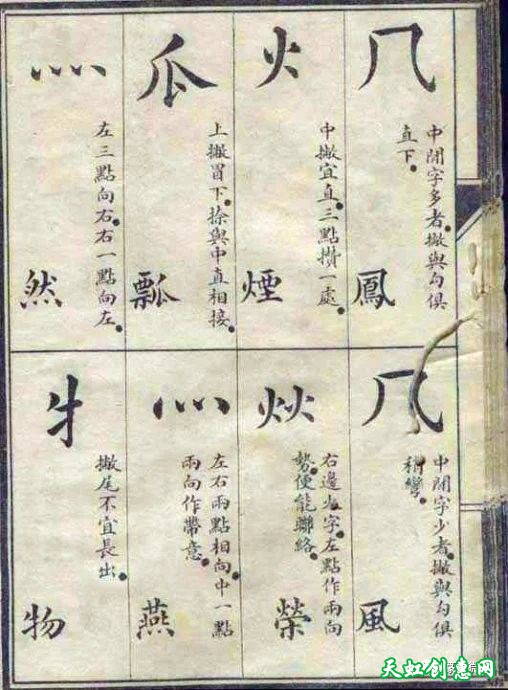 𠘨
中閒字多者撇與勾俱
直下
鳳
火
中撇宜直三點攢一處
煙
瓜
上撇冒下捺與中直相接
瓢
灬
左三點向右右一點向左
然
𠘨
中閒字少者撇與勾俱
稍彎
風
炏
右邊火字左點作兩向
勢便能聯絡
榮
灬
左右兩點相向中一點
兩向作帶意
燕
牜
撇尾不宜長出
物
天虹创意网